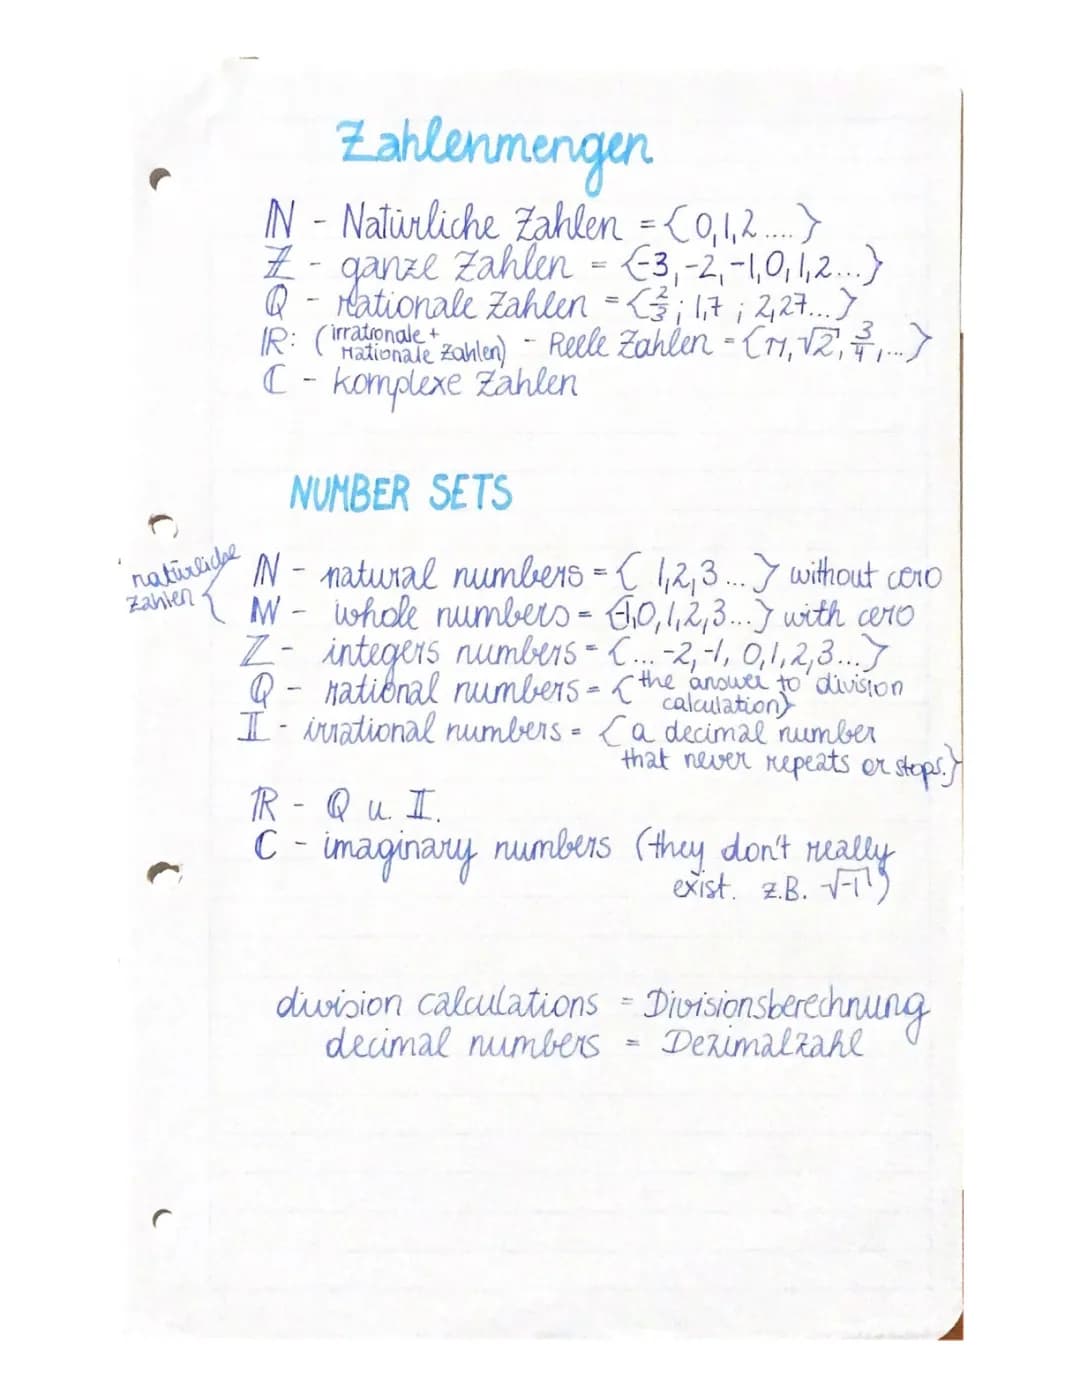 Zahlenmengen
ℕ - Natürliche Zahlen = {0,1,2....}
ℤ - ganze Zahlen = {-3,-2,-1,0,1,2...}
ℚ - rationale Zahlen = {2/3; 1,7 ; 2,27...}
ℝ: (irrationale + rationale Zahlen) - Reele Zahlen = {π, √2, 3/4,...}
ℂ - komplexe Zahlen
NUMBER SETS
natürliche Zahlen {
ℕ - natural numbers = { 1,2,3...} without cero
W - whole numbers = {0,1,2,3...} with cero
ℤ - integers numbers = {... -2,-1, 0,1,2,3...}
ℚ - rational numbers = {the answer to division
calculation}
𝕀 - irrational numbers = {a decimal number
that never repeats or stops.}
ℝ - ℚ u. 𝕀.
C - imaginary numbers (they don't really
exist. z.B. √-1)
division calculations = Divisionsberechnung
decimal numbers = Dezimalzahl